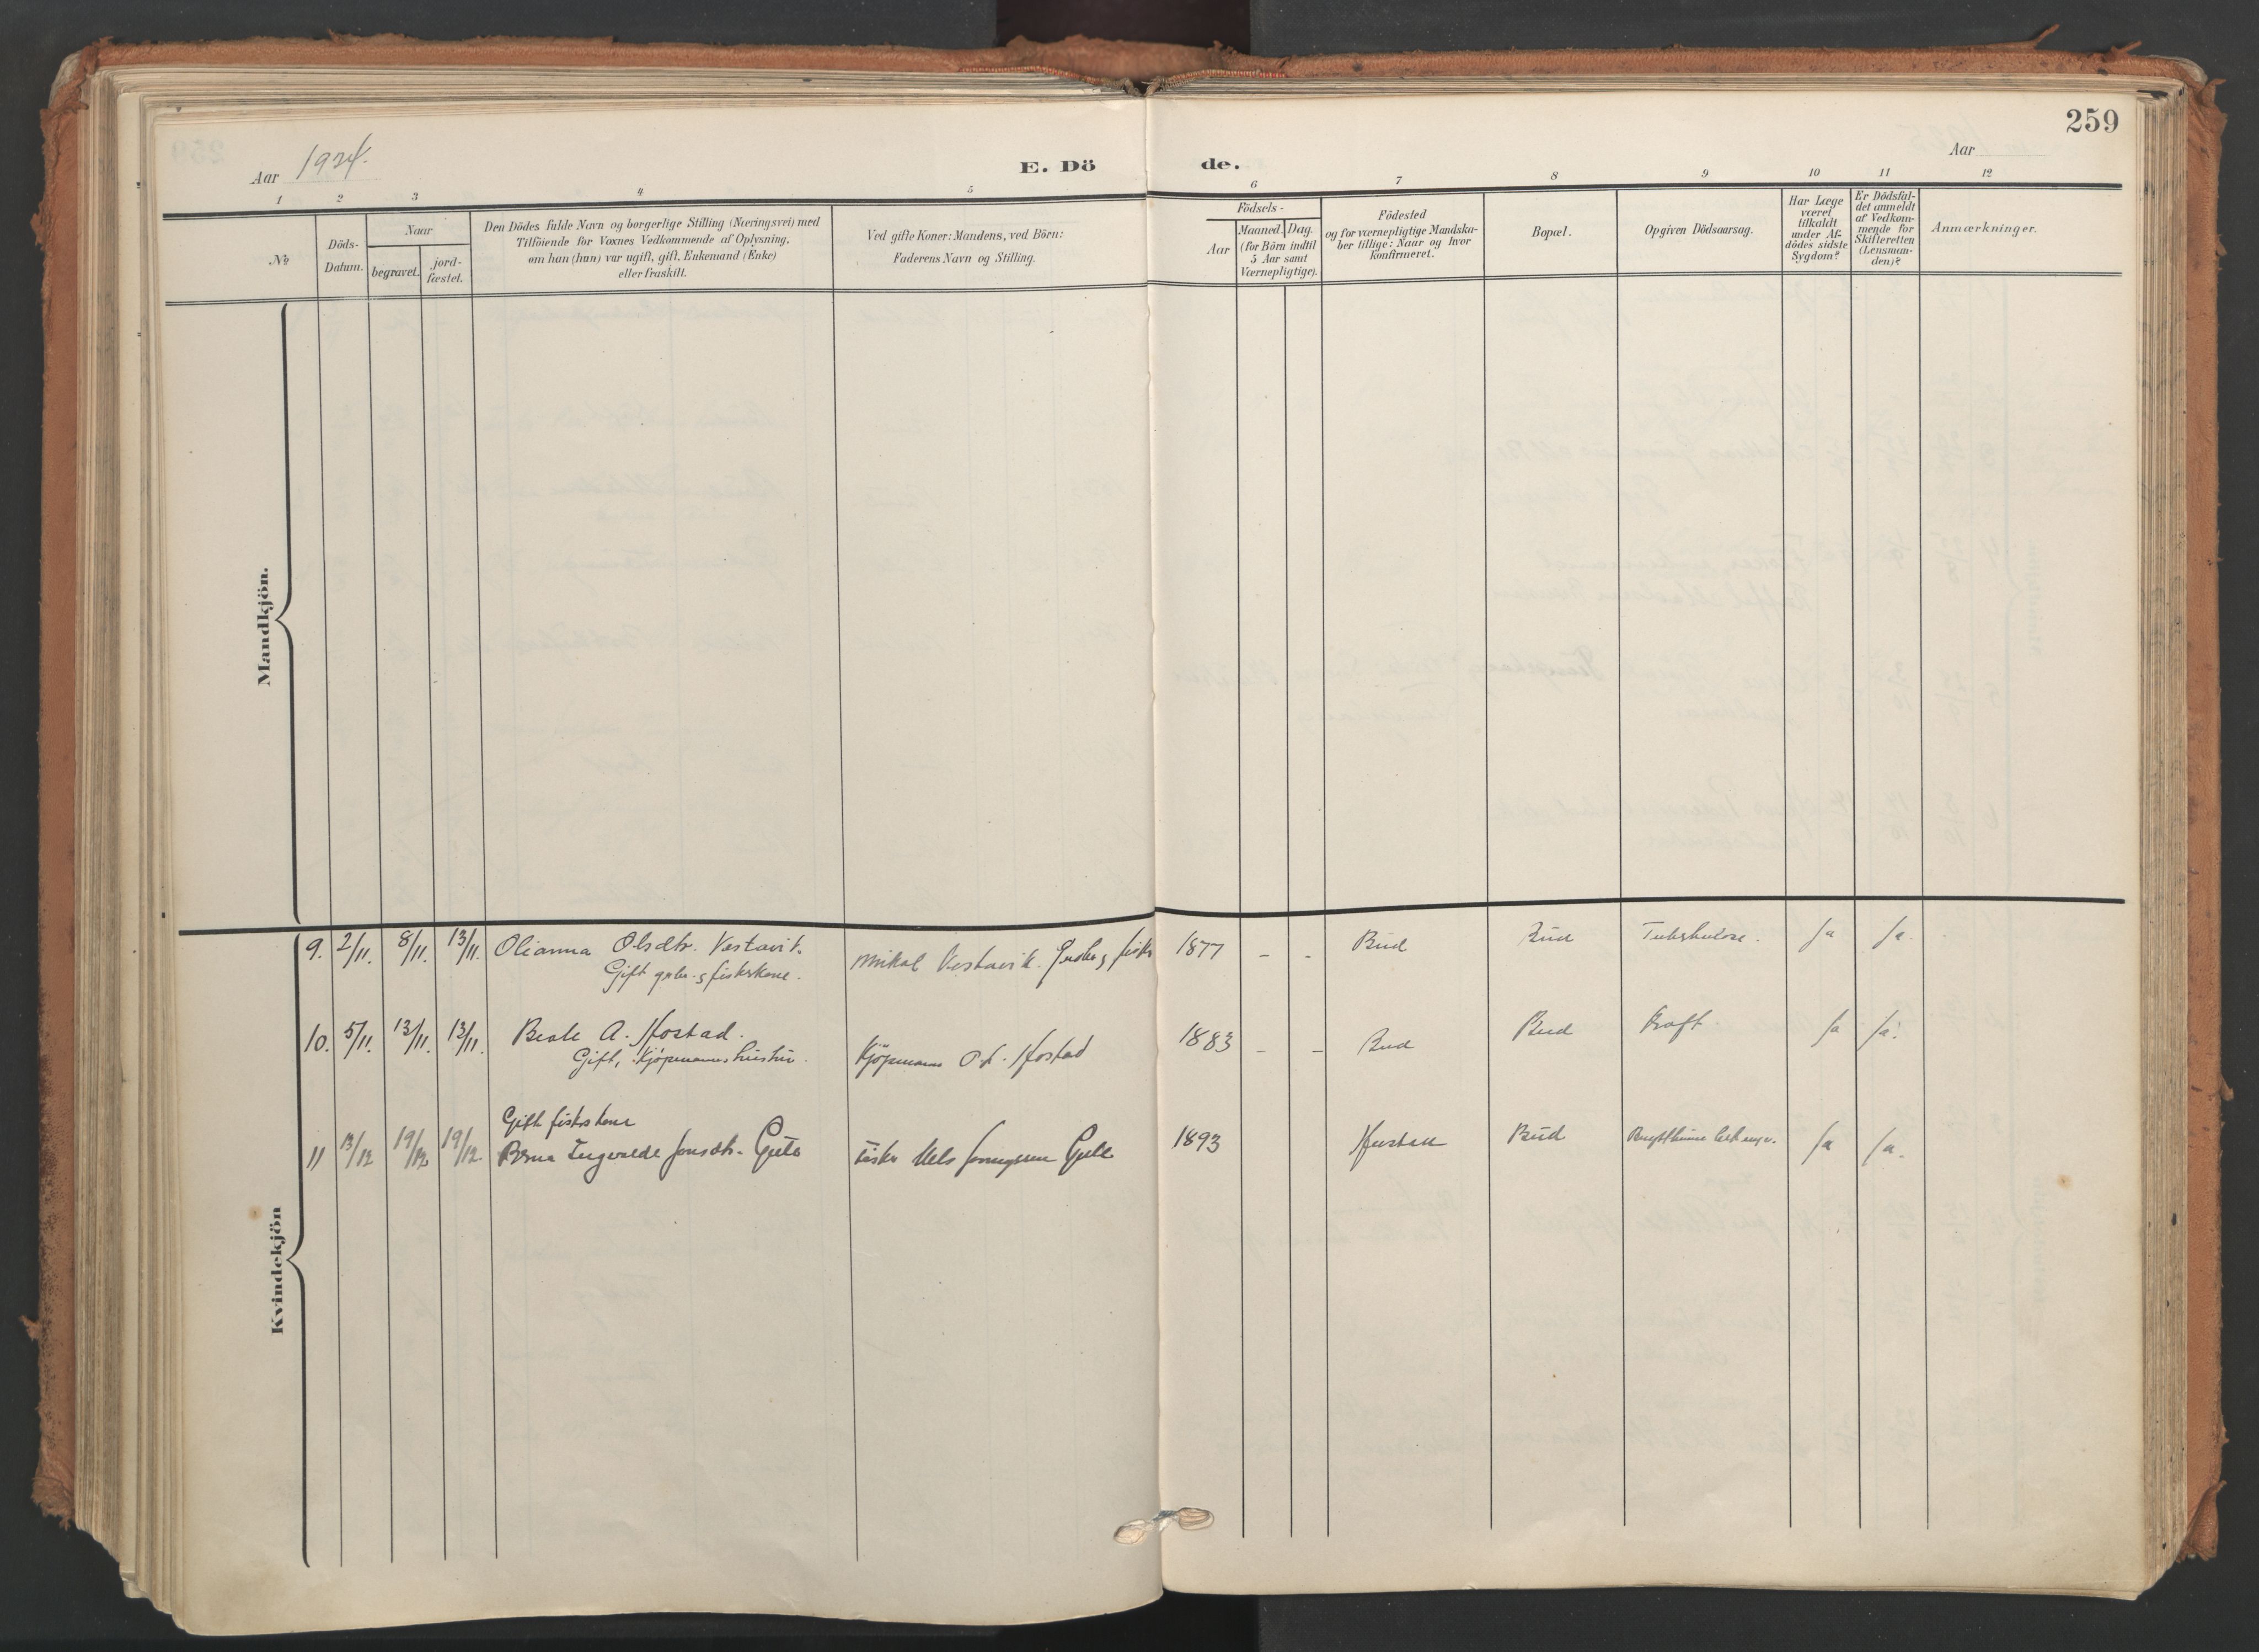 259
Aar 1924.
E. Dö de.
Aar
1 2 3 4 5 6 7 8 9 10 11 12
No
Döds-Datum.
Naar
begravet.
jord-fæstet.
Den Dödes fulde Navn og borgerlige Stilling (Næringsvei) med
Tilföiende for Voxnes Vedkommende af Oplysning,
om han (hun) var ugift, gift, Enkemand (Enke)
eller fraskilt.
Ved gifte Koner: Mandens, ved Börn:
Faderens Navn og Stilling.
Födsels-
Aar
Maaned. Dag.
(for Börn indtil
5 Aar samt
Værnepligtige).
Födested
og for værnepligtige Mandska-
ber tillige: Naar og hvor
konfirmeret.
Bopæl.
Opgiven Dödsaarsag.
Har Læge
været
tilkaldt
under Af-
dödes sidste
Sygdom?
Er Dödsfal-
det anmeldt
af Vedkom-
mende for
Skifteretten
(Lensman-
den)?
Anmærkninger.
Mandkjön.
Kvindekjön
9. 2/11. 8/11. 13/11. Olianna Olsdtr. Vestavik. Mikal Vestavik. 1877 - - Bud Bud Tuberkulose. Ja Ja.
Gift gbr. og fiskerkone.
10. 5/11. 13/11. 13/11. Beate A. Hostad. Kjöpmann O. Hostad 1883 - - Bud Bud Kræft Ja Ja.
Gift, Kjöpmannshustru.
Gift fiskerkone
11 13/12 19/12 19/12 Ingvalde Jonsdtr. Gule fisker Nels Gule 1893 Hustad Bud Ja Ja.